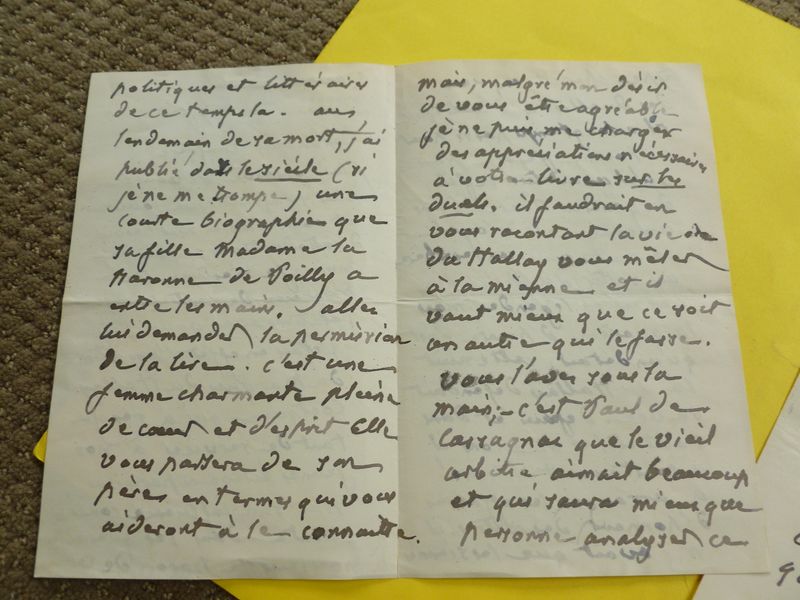 politiques et littéraires
de ce temps la. aus,
lendemain de sa mort, j'ai
publié dans le siécle (si
je ne me trompe) une
courte biographie que
sa fille Madame la
Baronne de Poilly a
entre les mains. allez
lui demander la permission
de la lire. c'est une
femme charmante pleine
de cœur et d'esprit Elle
vous parlera de son
père en termes qui vous
aideront à le connaitre.
mais, malgré mon désir
de vous être agréable
je ne puis me charger
des appréciations nécessaires
à votre livre sur les
duels. il faudrait en
vous racontant la vie de
du Hallay vous mêler
à la mienne et il
vaut mieux que ce soit
un autre qui le fasse.
vous l'avez sous la
main; - c'est Paul de
Cassagnac que le vieil
arbitre aimait beaucoup
et qui saura mieux que
personne analyser ce